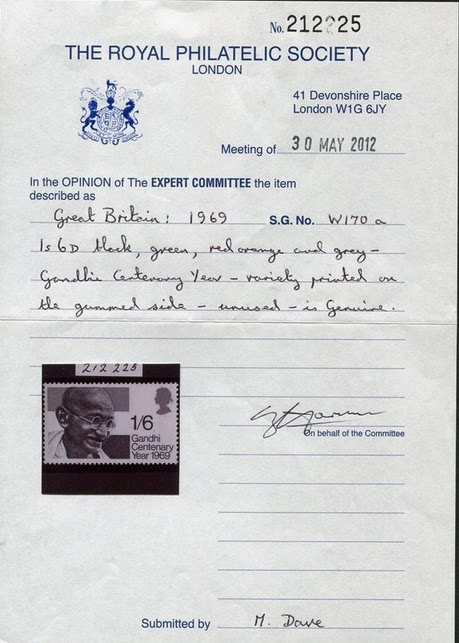 No. 212225
THE ROYAL PHILATELIC SOCIETY
LONDON
41 Devonshire Place
London W1G 6JY
Meeting of 30 MAY 2012
In the OPINION of The EXPERT COMMITTEE the item
described as
Great Britain: 1969 S.G. No. W170a
1s6D black, green, red orange and grey -
Gandhi Centenary Year - variety printed on
the gummed side - unused - is Genuine.
212225
1/6
Gandhi
Centenary
Year 1969
On behalf of the Committee
Submitted by M. Dave